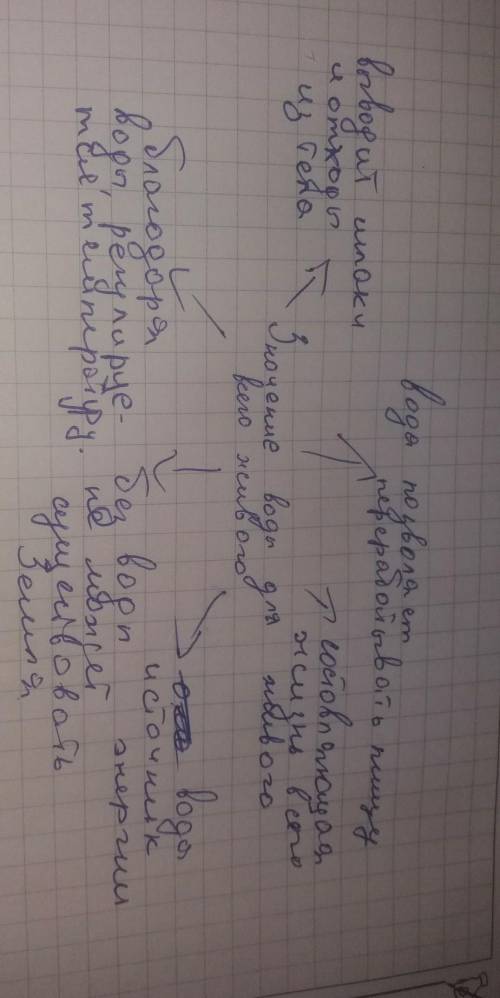 выводит шлаки
и отходы
из тела
вода позволяет
перерабатывать пищу
Значение воды для
всего живого
составляющая
жизнь всего
живого
благодаря
воды регулируе-
тся температура.
без воды
не может
существовать
Земля
вода
источник
энергии